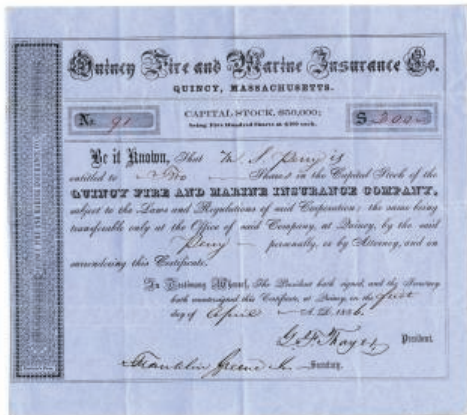 Quincy Fire and Marine Insurance Co.
QUINCY, MASSACHUSETTS.
No. 91
CAPITAL STOCK, $50,000;
being Five Hundred Shares at $100 each.
$ 200
Be it Known, That Wm S. Perry is
entitled to Two Shares in the Capital Stock of the
QUINCY FIRE AND MARINE INSURANCE COMPANY,
subject to the Laws and Regulations of said Corporation: the same being
transferable only at the Office of said Company, at Quincy, by the said
Perry personally, or by Attorney, and on
surrendering this Certificate.
In Testimony Whereof, The President hath signed, and the Secretary
hath countersigned this Certificate, at Quincy, in the first
day of April A. D. 1856.
G. F. Thayer President.
Franklin Greene Jr. Secretary.